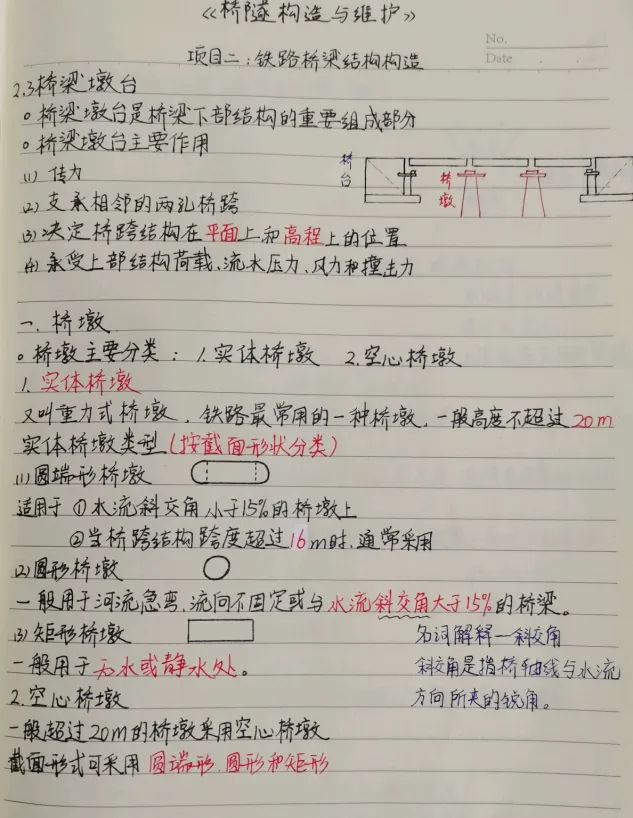 《桥隧构造与维护》
No.
Date
项目二:铁路桥梁结构构造
2.3桥梁墩台
桥梁墩台是桥梁下部结构的重要组成部分
桥梁墩台主要作用
(1) 传力
(2) 支承相邻的两孔桥跨
(3) 决定桥跨结构在平面上和高程上的位置
(4) 承受上部结构荷载、流水压力、风力和撞击力
桥台
桥墩
一. 桥墩
桥墩主要分类: 1.实体桥墩 2.空心桥墩
1. 实体桥墩
又叫重力式桥墩,铁路最常用的一种桥墩,一般高度不超过20m
实体桥墩类型(按截面形状分类)
(1)圆端形桥墩
适用于 ①水流斜交角小于15%的桥墩上
②当桥跨结构跨度超过16m时,通常采用
(2)圆形桥墩
一般用于河流急弯,流向不固定或与水流斜交角大于15%的桥梁。
(3)矩形桥墩
一般用于无水或静水处。
名词解释—斜交角
斜交角是指桥轴线与水流
方向所夹的锐角。
2.空心桥墩
一般超过20m的桥墩采用空心桥墩
截面形式可采用圆端形、圆形和矩形